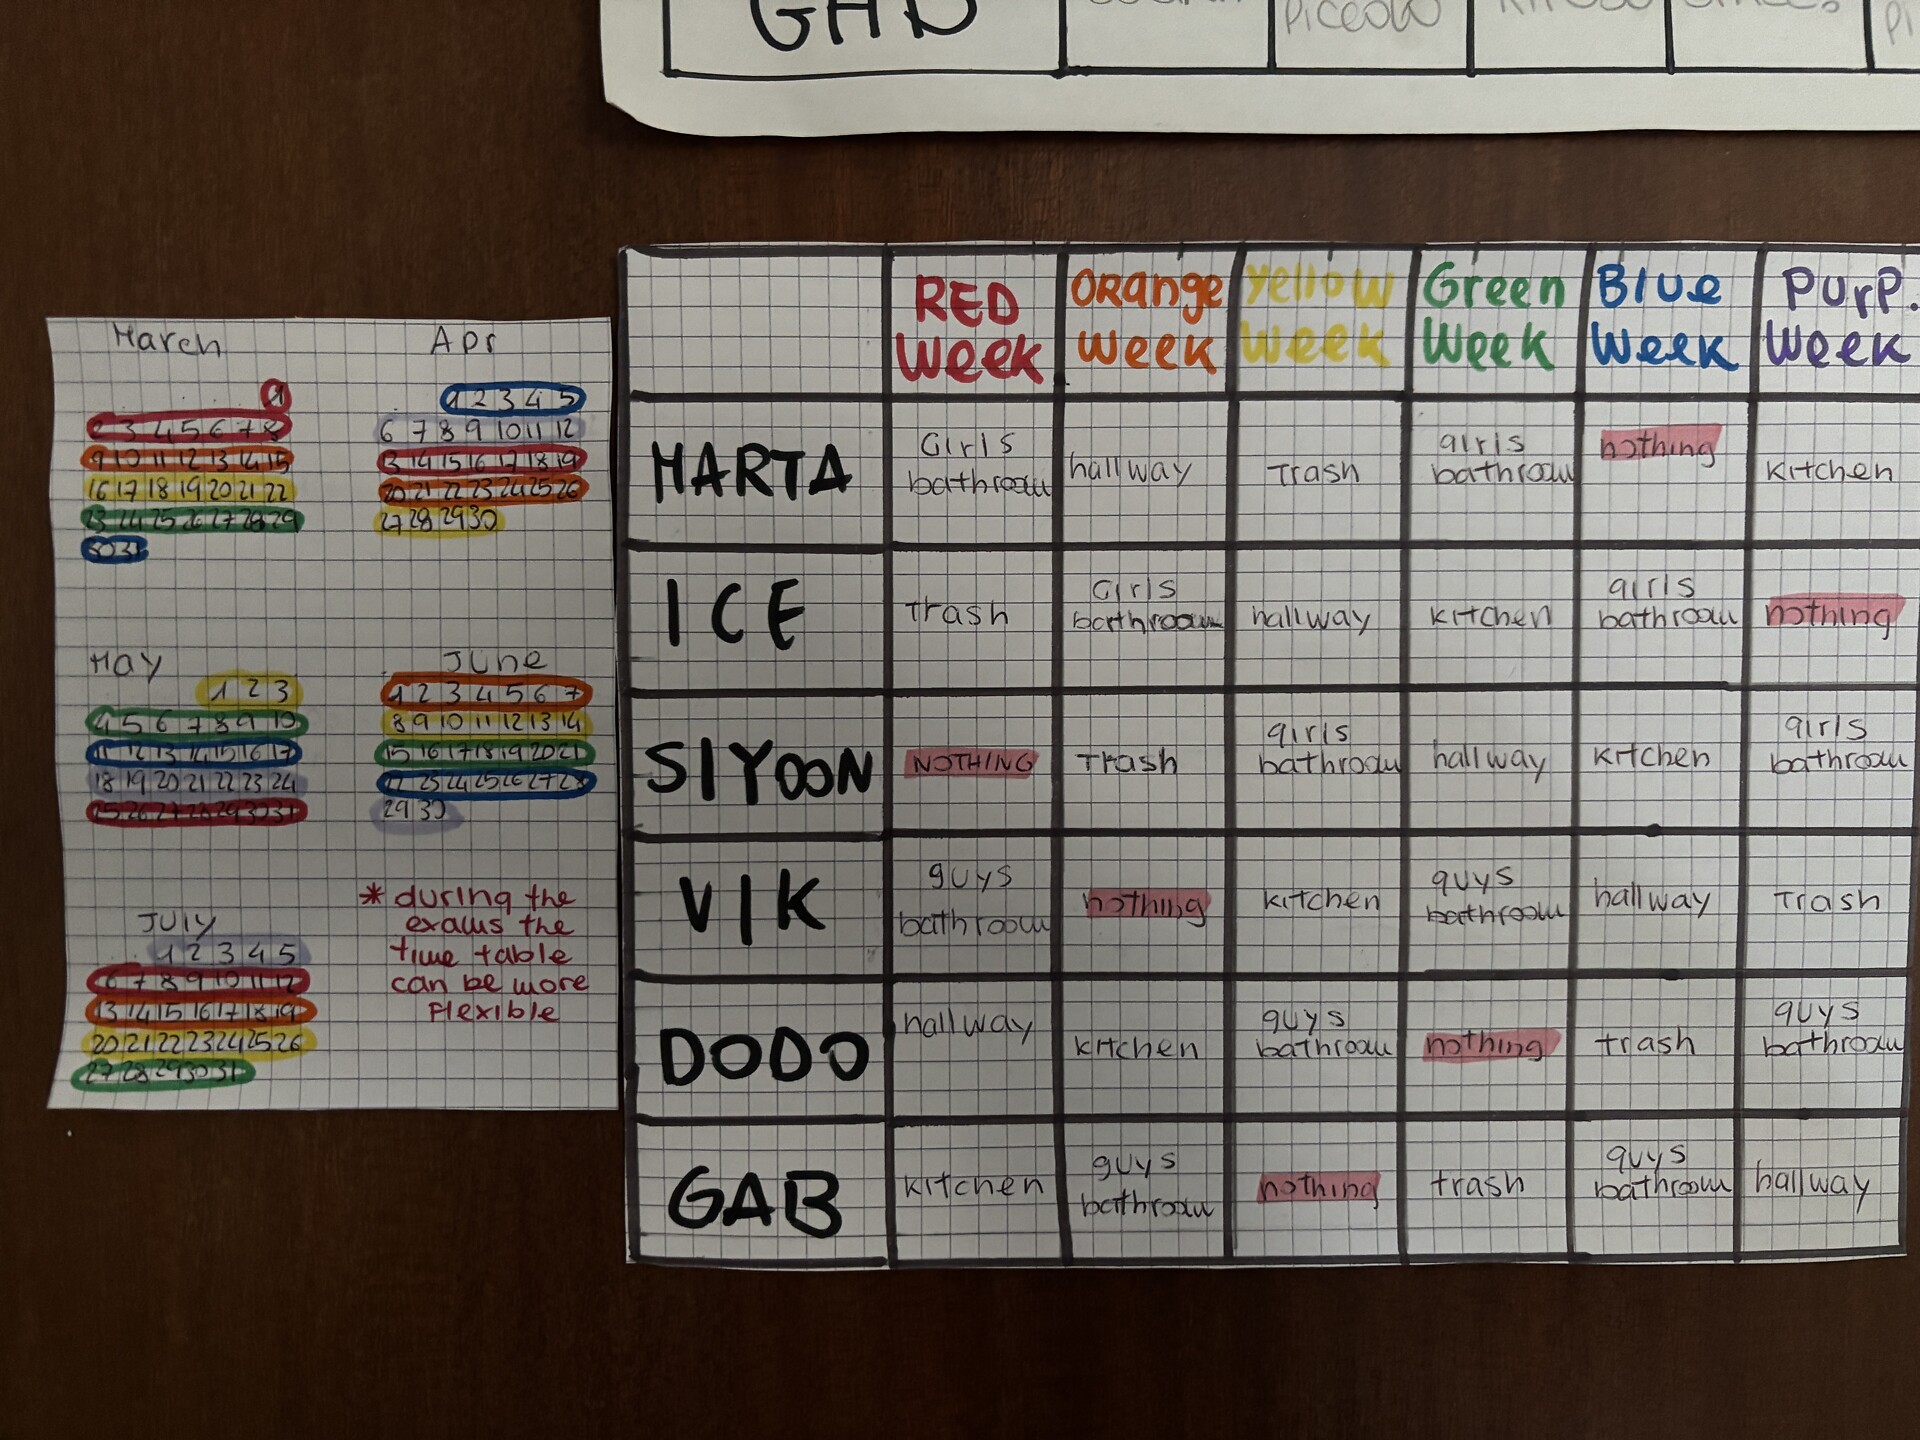 GAB
Piccolo
March
1
2 3 4 5 6 7 8
9 10 11 12 13 14 15
16 17 18 19 20 21 22
23 24 25 26 27 28 29
30 31
Apr
1 2 3 4 5
6 7 8 9 10 11 12
13 14 15 16 17 18 19
20 21 22 23 24 25 26
27 28 29 30
May
1 2 3
4 5 6 7 8 9 10
11 12 13 14 15 16 17
18 19 20 21 22 23 24
25 26 27 28 29 30 31
June
1 2 3 4 5 6 7
8 9 10 11 12 13 14
15 16 17 18 19 20 21
22 23 24 25 26 27 28
29 30
July
1 2 3 4 5
6 7 8 9 10 11 12
13 14 15 16 17 18 19
20 21 22 23 24 25 26
27 28 29 30 31
* during the
exams the
time table
can be more
flexible
RED Week
Orange Week
Yellow Week
Green Week
Blue Week
Purp. Week
MARTA
Girls bathroom
hallway
Trash
girls bathroom
nothing
kitchen
ICE
Trash
Girls bathroom
hallway
kitchen
girls bathroom
nothing
SIYOON
NOTHING
Trash
girls bathroom
hallway
kitchen
girls bathroom
VIK
guys bathroom
nothing
kitchen
guys bathroom
hallway
Trash
DODO
hallway
kitchen
guys bathroom
nothing
trash
guys bathroom
GAB
kitchen
guys bathroom
nothing
trash
guys bathroom
hallway